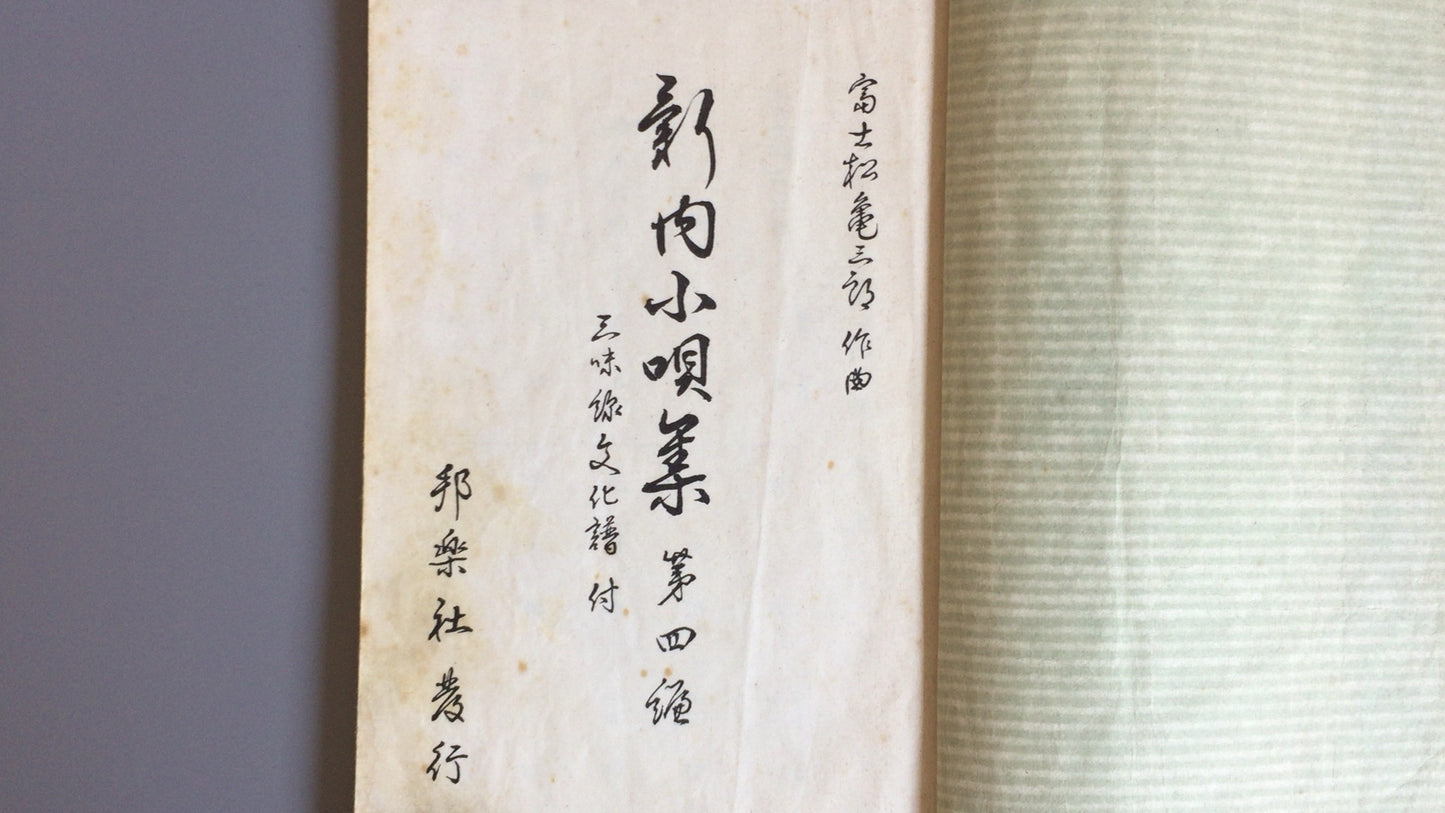 富士松亀三郎 作曲
新内小唄集 第四編
三味線文化譜付
邦楽社發行